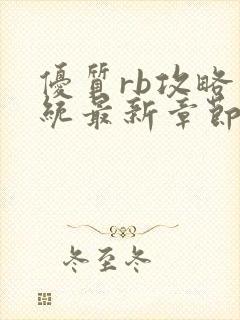 優質rb攻略
統最新章節
冬至冬